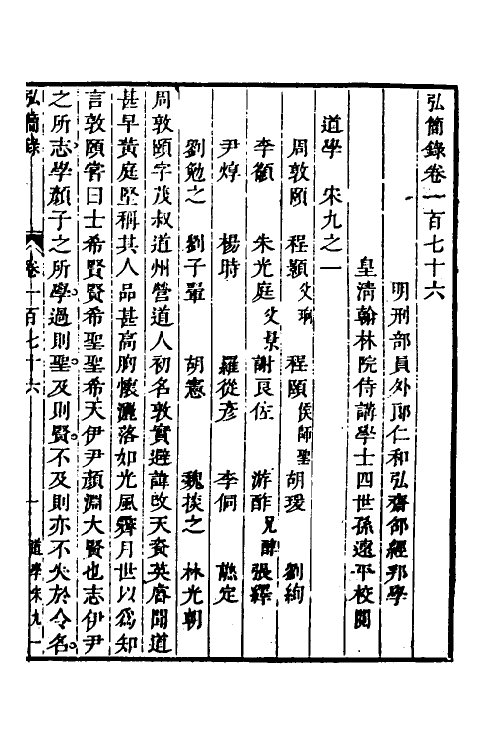 弘簡錄卷一百七十六
明刑部員外郎仁和弘齋邵經邦學
皇清翰林院侍講學士四世孫遠平校閱
道學 宋九之一
周敦頤 程顥父珦 程頤侯師聖 胡瑗 劉絢
李籲 朱光庭父景 謝良佐 游酢兄醇 張繹
尹焞 楊時 羅從彥 李侗 熊定
劉勉之 劉子翬 胡憲 魏掞之 林光朝
周敦頤字茂叔道州營道人初名敦實避諱改天資英睿聞道
甚早黃庭堅稱其人品甚高胸懷灑落如光風霽月世以爲知
言敦頤嘗曰士希賢賢希聖聖希天伊尹顏淵大賢也志伊尹
之所志學顏子之所學過則聖及則賢不及則亦不失於令名
弘簡錄 卷一百七十六 一 道學宋九一